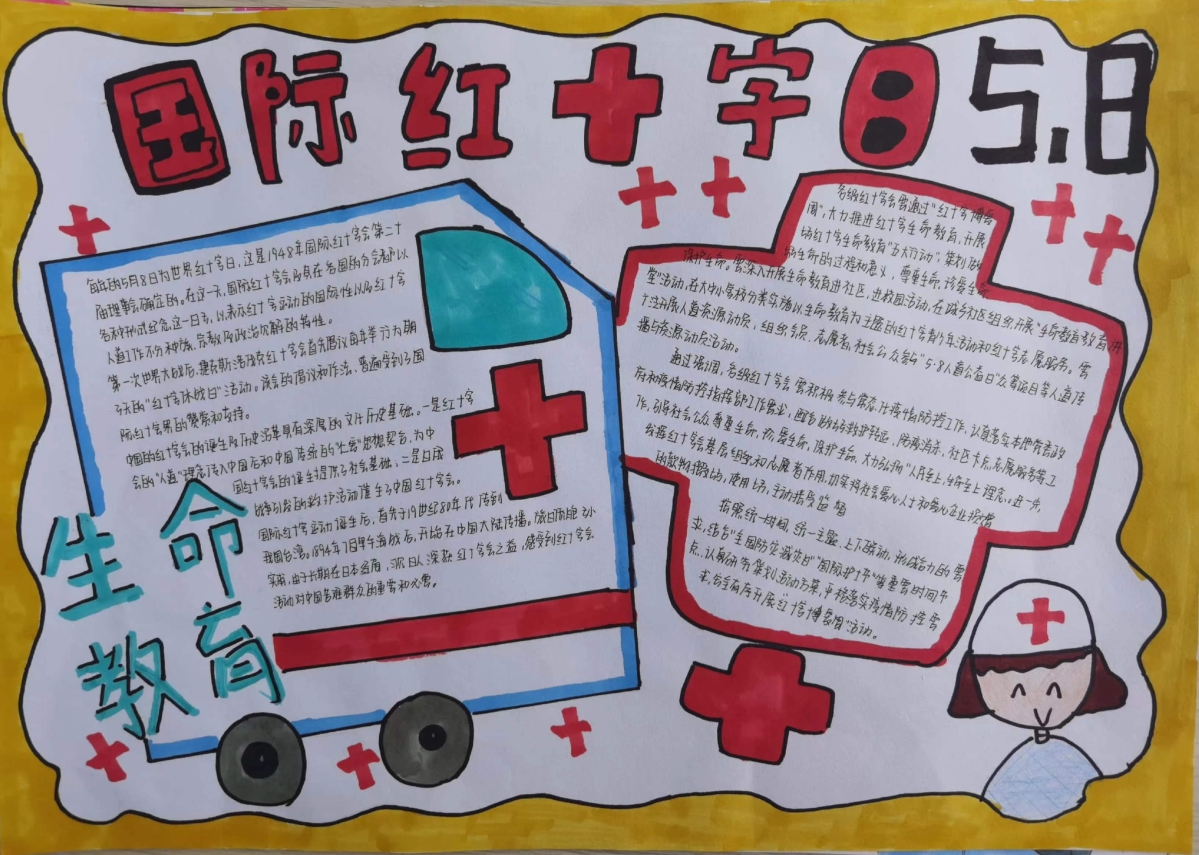 国际红十字日5.8
每年的5月8日为世界红十字日,这是1948年国际红十字会第二十
届理事会确定的。在这一天,国际红十字会及其在各国的分会都以
各种形式纪念这一日子,以表示红十字运动的国际性以及红十字
人道工作不分种族,宗教及政治见解的特性。
第一次世界大战后,捷克斯洛伐克红十字会首先倡议每年举行为期
3天的“红十字休战日”活动。该会的倡议和作法,普遍受到各国
际红十字界的赞赏和支持。
中国的红十字会的诞生及历史沿革具有深厚的文化历史基础。一是红十字
会的“人道”理念传入中国后和中国传统的“仁爱”思想契合,为中
国红十字会的诞生提供了社会基础;二是日俄
战争引发的救护活动催生了中国红十字会。
国际红十字运动诞生后,首先于19世纪80年代传到
我国台湾。1894年7月甲午海战后,开始在中国大陆传播。旅日侨绅孙
实甫,由于长期在日本经商,
深
红十字会之益,感受到红十字会
活动对中国苦难群众的重要和必需。
生命
教育
各级红十字会要通过“红十字博爱
周”,大力推进红十字生命教育,开展
的红十字生命教育“五大行动”,策划
的生命的过程和意义,尊重生命,珍爱生命,
保护生命。要深入开展生命教育进社区,进校园活动,在城乡社区组织开展“生命教育教育讲
堂”活动,在大中小学校分类实施以生命教育为主题的红十字青少年活动和红十字志愿服务。要
广泛开展人道资源动员,组织会员、志愿者、社会公众参与“5·8人道公益日”众筹项目等人道传
播与资源动员活动。
通过强调,各级红十字会要积极参与常态化疫情防控工作,认真落实本地党委政
府和疫情防控指挥部工作
,围绕
救护转运,防病消杀,社区卡点,志愿服务等工
作,引导社会公众尊重生命,珍爱生命,保护生命,大力弘扬“人民至上,生命至上”理念。进一步
发挥红十字会基层组织和志愿者作用,切实将社会爱心人士和爱心企业捐赠
的款物捐赠
,使用
,主动接受监督
按照统一时间,统一主题,上下联动,形成合力的要
求,结合“全国防灾减灾日”“国际护士节”等重要时间节
点,认真研究策划活动方案,严格落实疫情防控要
求,安全有序开展“红十字博爱周”活动。